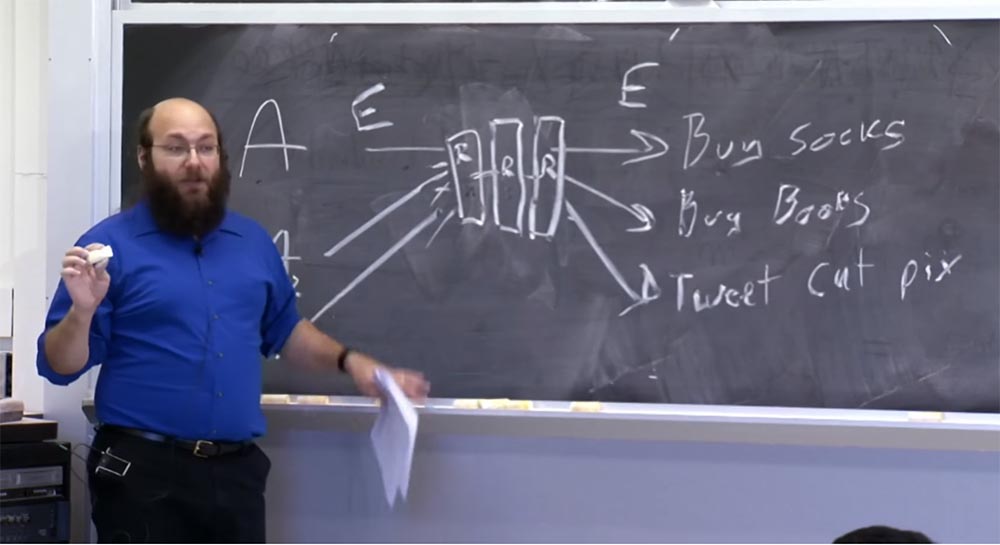 A E E
R R R
Buy socks
Buy Books
Tweet Cat pix
A